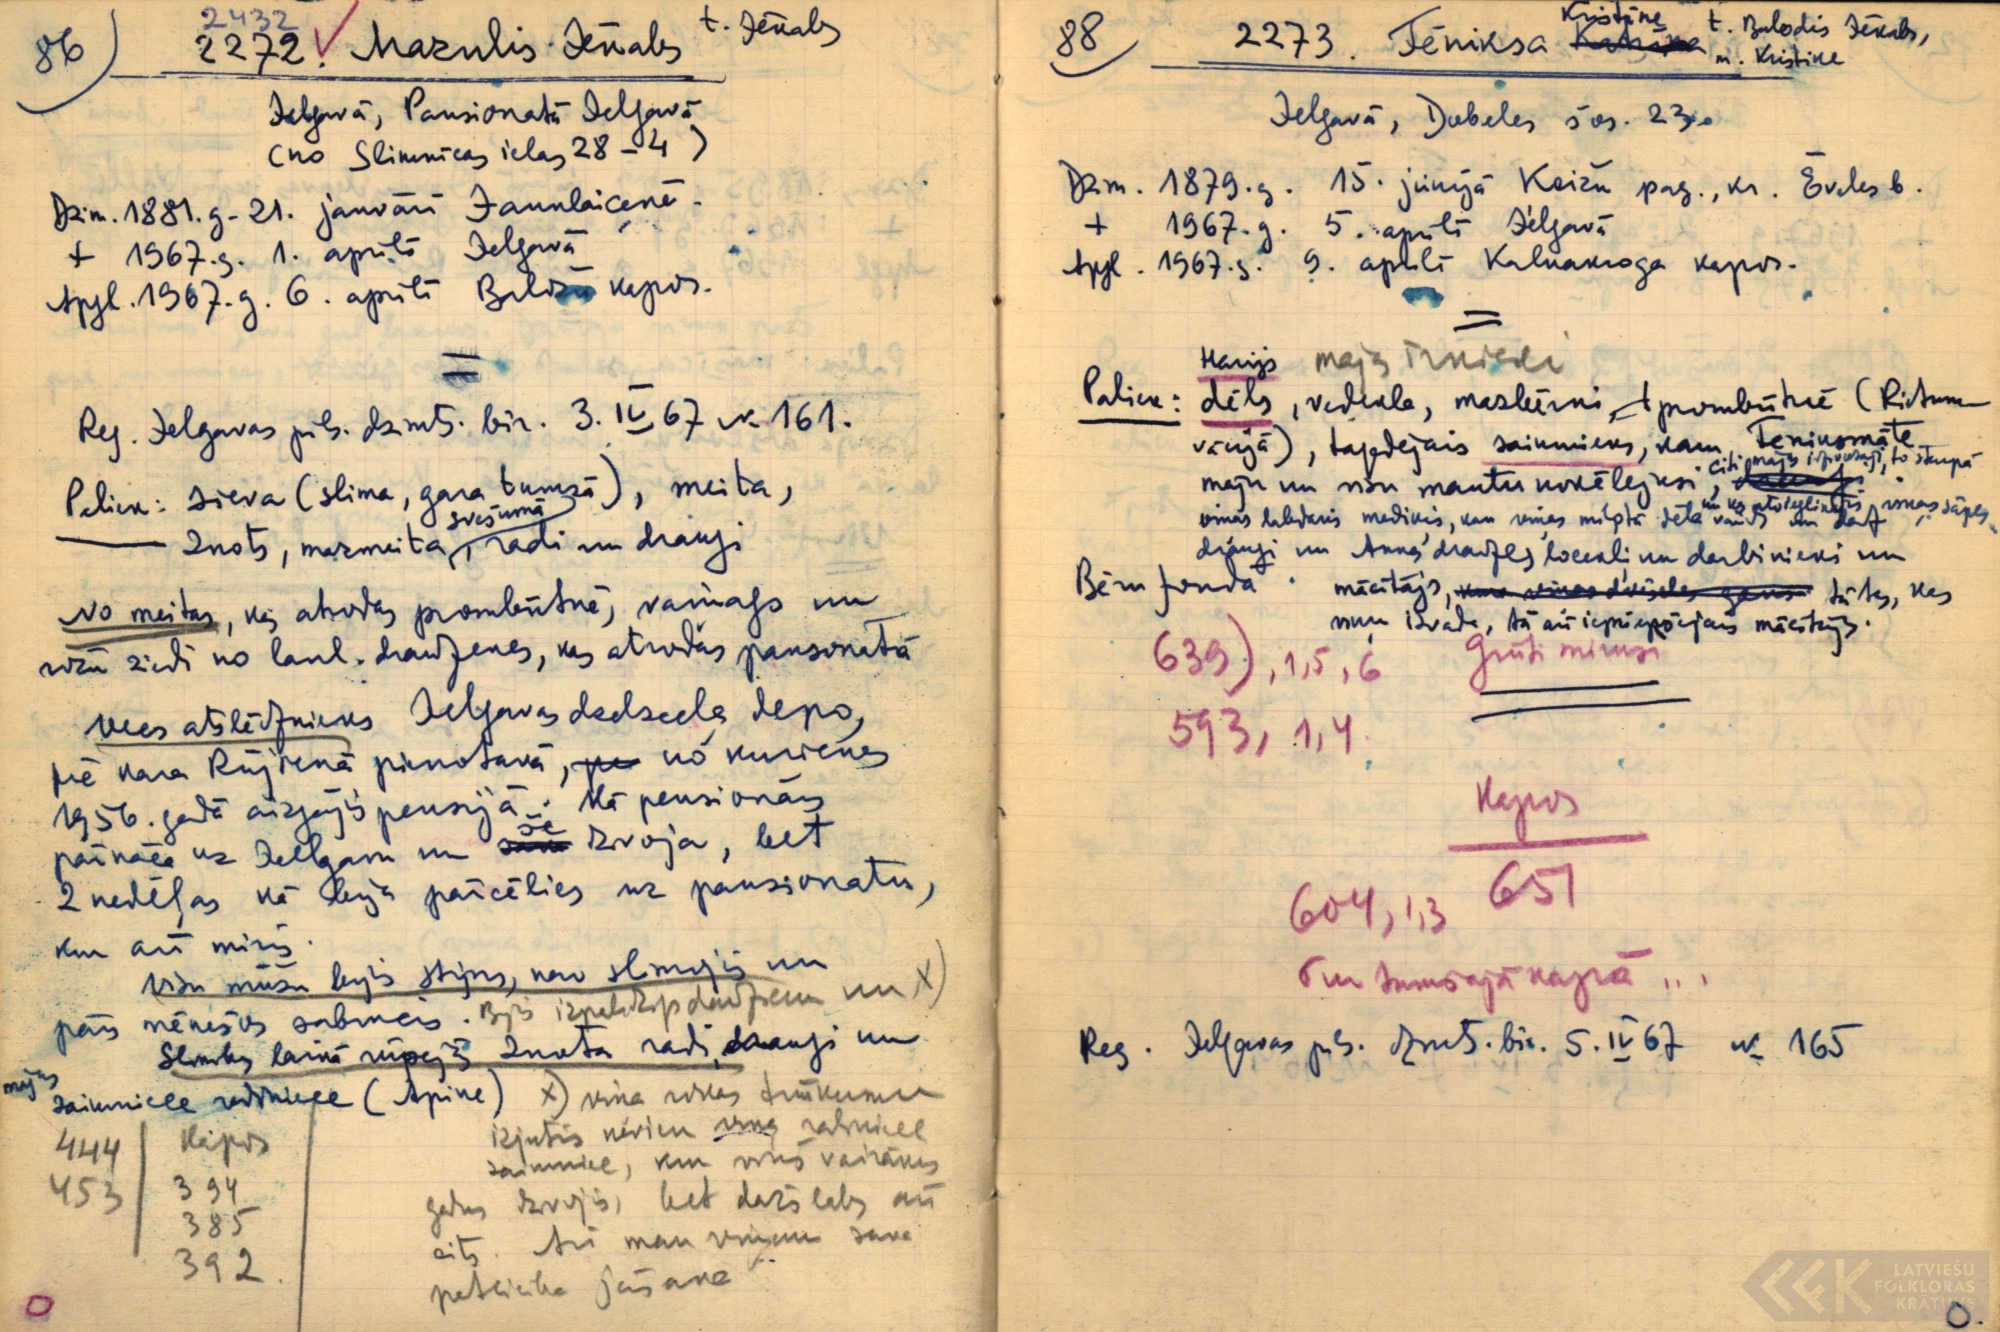 86)
2432
2272. Mazulis Jēkabs t. Jēkabs
Jelgavā, Pansionatā Jelgavā
(no Slimnīcas ielas 28-4)
Dzim. 1881.g. 21. janvārī Jaunlaicenē.
+ 1967.g. 1. aprīlī Jelgavā
Apgl. 1967.g. 6. aprīlī Baložu kapos.
Reg. Jelgavas pils. dzimts. bir. 3. IV 67 № 161.
Paliek: sieva (slima, gara tumsā), meita,
svešumā
znots, mazmeita, radi un draugi
No meitas, kas atrodas prombūtnē, vaiņags un
rožu ziedi no laul. draudzenes, kas atrodas pansonatā
Vecs atslēdznieks Jelgavas dzelzceļa depo,
pē kara Rūjienā pienotavā, no kurienes
1956. gadā aizgājis pensijā. Kā pensionārs
pārnāca uz Jelgavu un še dzīvoja, bet
2 nedēļas kā bija pārcēlies uz pansionatu,
kur arī miris.
Visu mūžu bijis stiprs, nav slimojis un
pārs mēnešos sabrucis. Bijis izpalīdzīgs daudziem un x)
Slimības laikā rūpējās znota radi, draugi un
mājas
saimniece radiniece (Apine) x) viņa rokas trūkumu
izjutīs nevien viņa radiniece
saimniece, kur viņš vairākus
gadus dzīvojis, bet dažs labs arī
cits. Arī man viņam sava
pateicība jāsaka
444
453
Kapos
394
385
392.
88)
2273. Fēniksa Kristīne t. Balodis Jēkabs,
m. Kristīne
Jelgavā, Dobeles šos. 23.
Dzim. 1879.g. 15. jūnijā Koižu pag., kr. Ēveles b.
+ 1967.g. 5. aprīlī Jelgavā
Apgl. 1967.g. 9. aprīlī Kalnakroga kapos.
Harijs mājas īrnieki
Paliek: dēls, vedekla, mazbērni, prombūtnē (Rietum
vācijā), tagadējais saimnieks, kam Feniksmāte
māju un visu mantu novēlējusi,
viņas labdaris medikis, kam viņas mīļotā dēla vārds
draugi un Annas draudzes locekļi un darbinieki un
mācītājs, tas, kas
viņu izvada, tā arī iepriekšējais mācītājs.
Bēru fonda
639), 1, 5, 6
593, 1, 4.
Grūti mirusi
Kapos
651
604, 1, 3
Tur tumšajā kapā ...
Reg. Jelgavas pils. dzimts. bir. 5. IV 67 № 165
LATVIEŠU
FOLKLORAS
KRĀTUVE